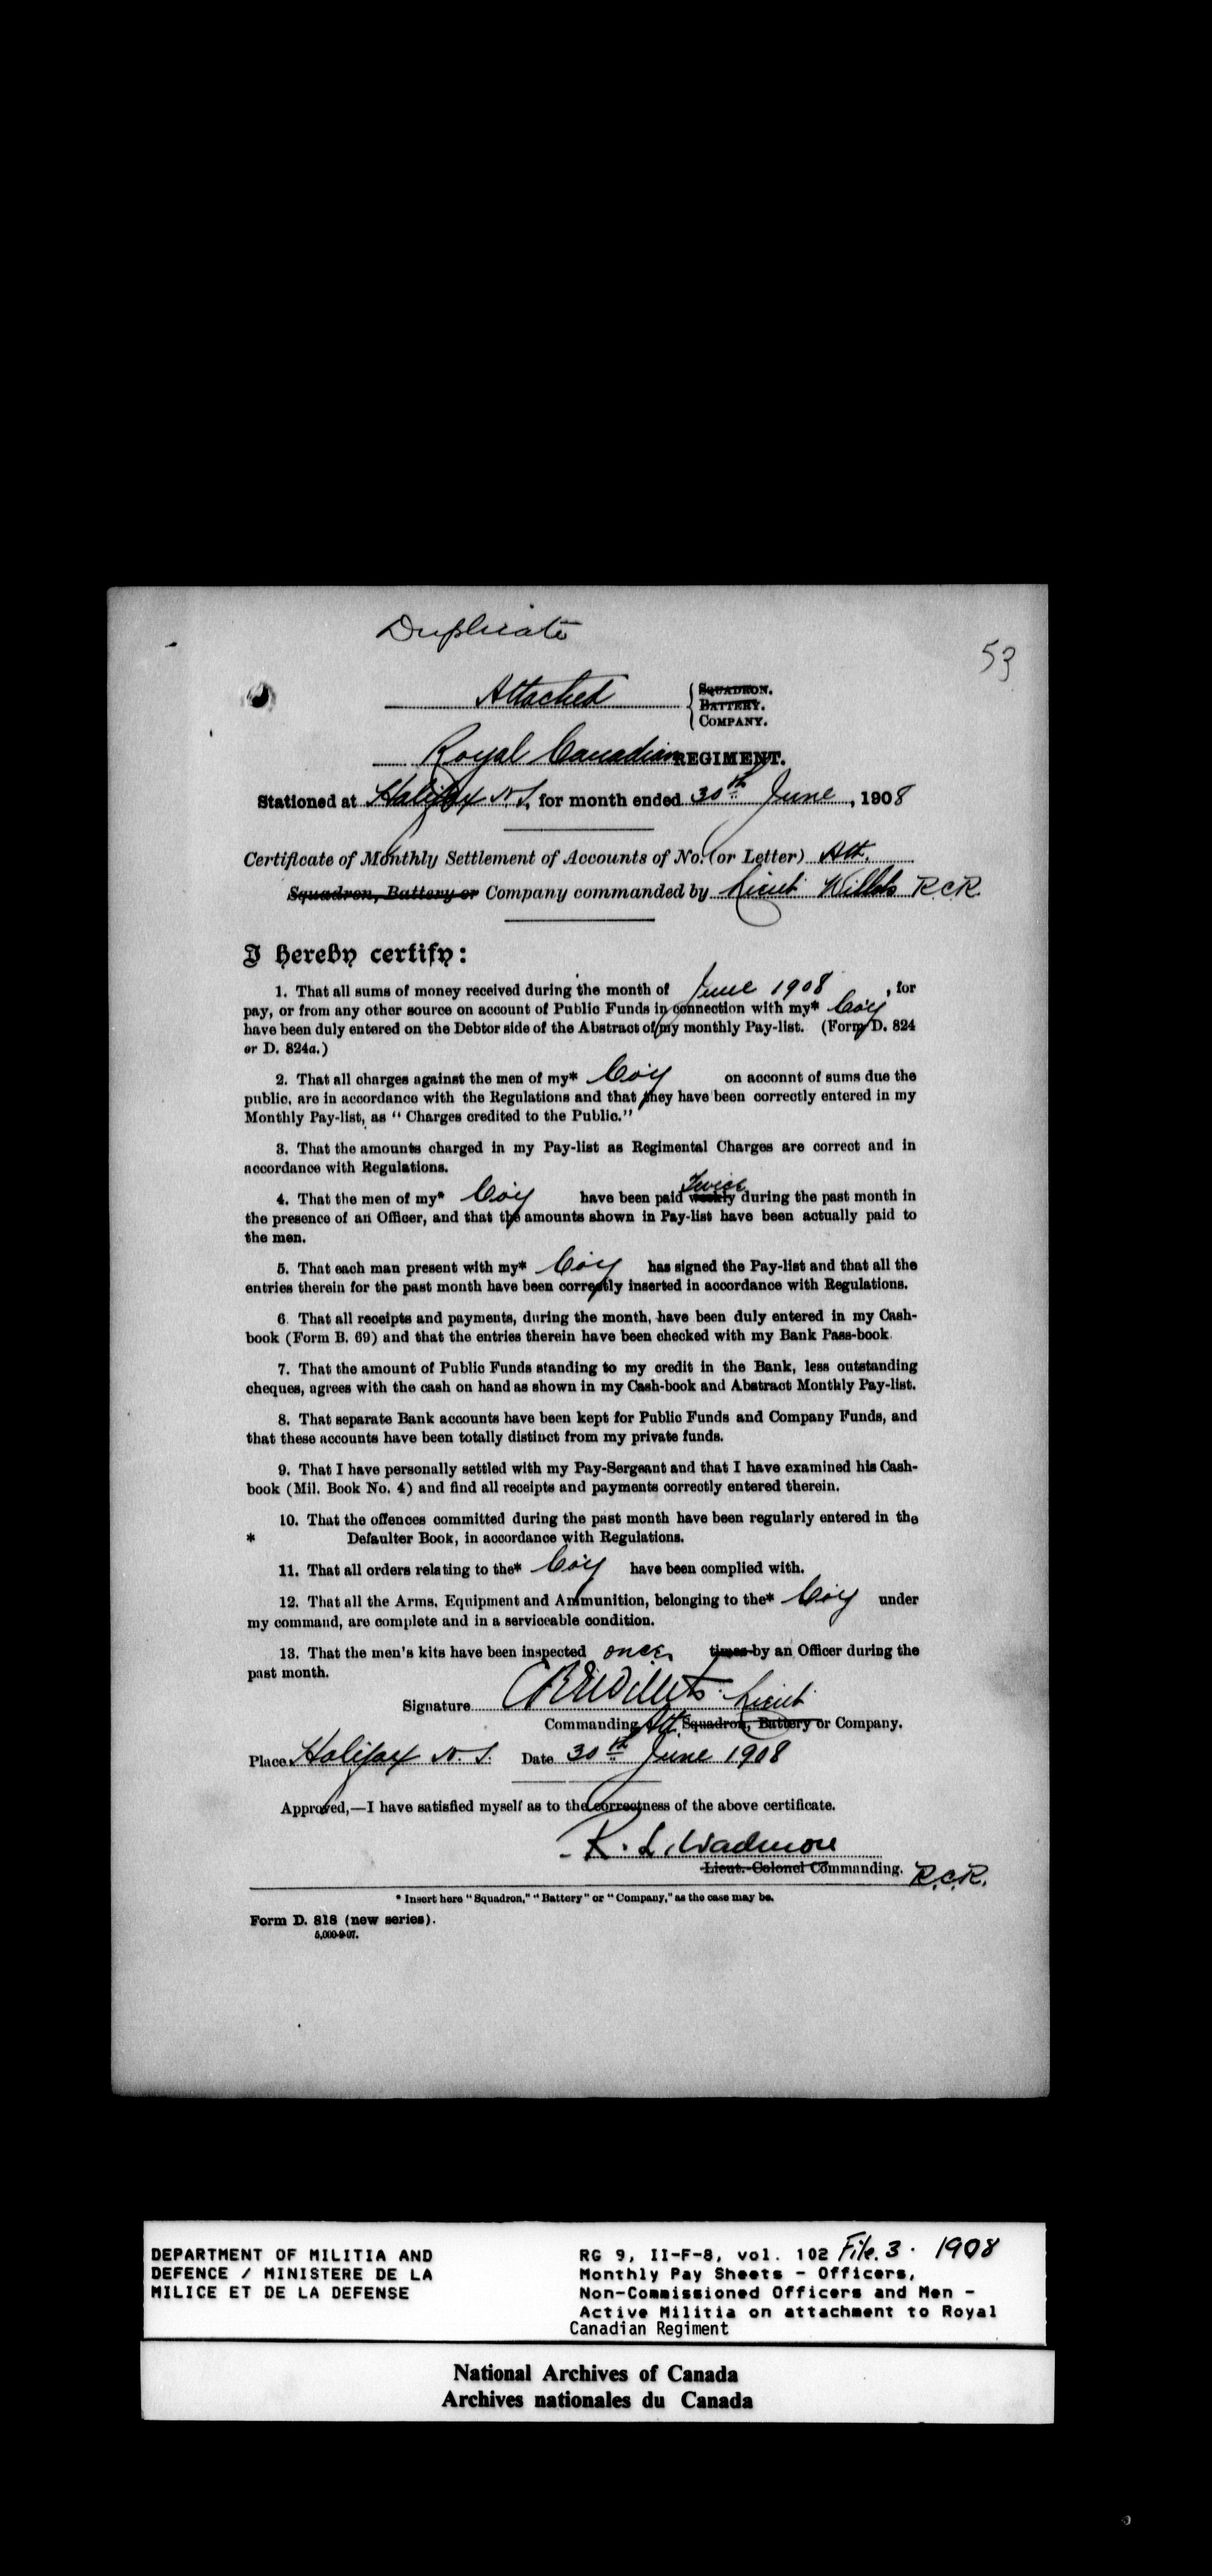 Duplicate
53
Attached { SQUADRON.
BATTERY.
COMPANY.
Royal Canadian REGIMENT.
Stationed at Halifax N.S. for month ended 30th June, 1908
Certificate of Monthly Settlement of Accounts of No. (or Letter) Att.
Squadron, Battery or Company commanded by Lieut Willets R.C.R.
I hereby certify:
1. That all sums of money received during the month of June 1908, for
pay, or from any other source on account of Public Funds in connection with my* Coy
have been duly entered on the Debtor side of the Abstract of my monthly Pay-list. (Form D. 824
or D. 824a.)
2. That all charges against the men of my* Coy on acconnt of sums due the
public, are in accordance with the Regulations and that they have been correctly entered in my
Monthly Pay-list, as " Charges credited to the Public."
3. That the amounts charged in my Pay-list as Regimental Charges are correct and in
accordance with Regulations.
4. That the men of my* Coy have been paid weekly Twice during the past month in
the presence of an Officer, and that the amounts shown in Pay-list have been actually paid to
the men.
5. That each man present with my* Coy has signed the Pay-list and that all the
entries therein for the past month have been correctly inserted in accordance with Regulations.
6. That all receipts and payments, during the month, have been duly entered in my Cash-
book (Form B. 69) and that the entries therein have been checked with my Bank Pass-book.
7. That the amount of Public Funds standing to my credit in the Bank, less outstanding
cheques, agrees with the cash on hand as shown in my Cash-book and Abstract Monthly Pay-list.
8. That separate Bank accounts have been kept for Public Funds and Company Funds, and
that these accounts have been totally distinct from my private funds.
9. That I have personally settled with my Pay-Sergeant and that I have examined his Cash-
book (Mil. Book No. 4) and find all receipts and payments correctly entered therein.
10. That the offences committed during the past month have been regularly entered in the
* Defaulter Book, in accordance with Regulations.
11. That all orders relating to the* Coy have been complied with.
12. That all the Arms, Equipment and Ammunition, belonging to the* Coy under
my command, are complete and in a serviceable condition.
13. That the men's kits have been inspected once times by an Officer during the
past month.
Signature CREWillets Lieut
Commanding Att. Squadron, Battery or Company.
Place Halifax N.S. Date 30th June 1908
Approved,—I have satisfied myself as to the correctness of the above certificate.
R. L. Wadmore
Lieut.-Colonel Commanding. R.C.R.
* Insert here "Squadron," "Battery" or "Company," as the case may be.
Form D. 818 (new series).
5,000-9-07.
DEPARTMENT OF MILITIA AND
DEFENCE / MINISTERE DE LA
MILICE ET DE LA DEFENSE
RG 9, II-F-8, vol. 102 File. 3 · 1908
Monthly Pay Sheets - Officers,
Non-Commissioned Officers and Men -
Active Militia on attachment to Royal
Canadian Regiment
National Archives of Canada
Archives nationales du Canada